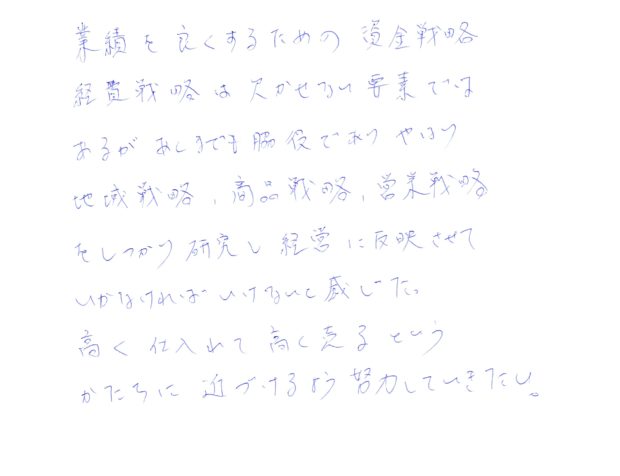 業績を良くするための資金戦略
経費戦略は欠かせない要素では
あるがあくまでも脇役でありやはり
地域戦略、商品戦略、営業戦略
をしっかり研究し経営に反映させて
いかなければいけないと感じた。
高く仕入れて高く売るという
かたちに近づけるよう努力していきたい。